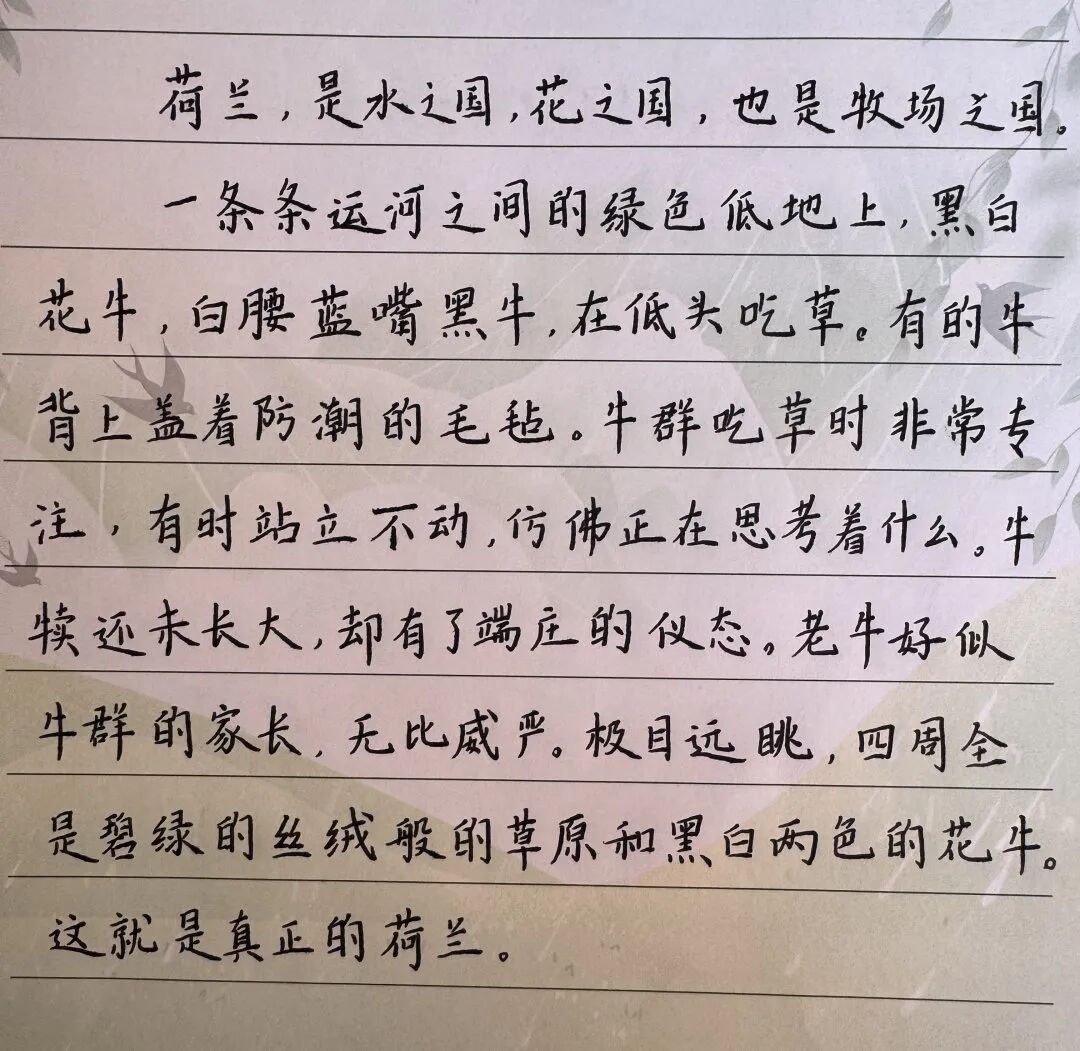 荷兰，是水之国，花之国，也是牧场之国。
一条条运河之间的绿色低地上，黑白
花牛，白腰蓝嘴黑牛，在低头吃草。有的牛
背上盖着防潮的毛毡。牛群吃草时非常专
注，有时站立不动，仿佛正在思考着什么。牛
犊还未长大，却有了端庄的仪态。老牛好似
牛群的家长，无比威严。极目远眺，四周全
是碧绿的丝绒般的草原和黑白两色的花牛。
这就是真正的荷兰。